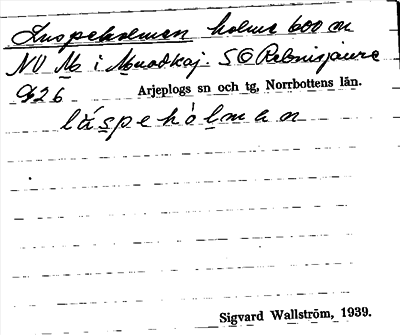 Luspeholmen holme 600 m
NV Nb i Muodkaj. SO Rebnisjaure
926 Arjeplogs sn och tg, Norrbottens län.
lu̇spehȯlmen
Sigvard Wallström, 1939.